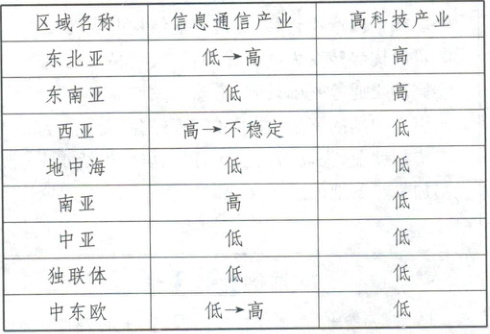 区域名称 信息通信产业 高科技产业
东北亚 低→高 高
东南亚 低 高
西亚 高→不稳定 低
地中海 低 低
南亚 高 低
中亚 低 低
独联体 低 低
中东欧 低→高 低